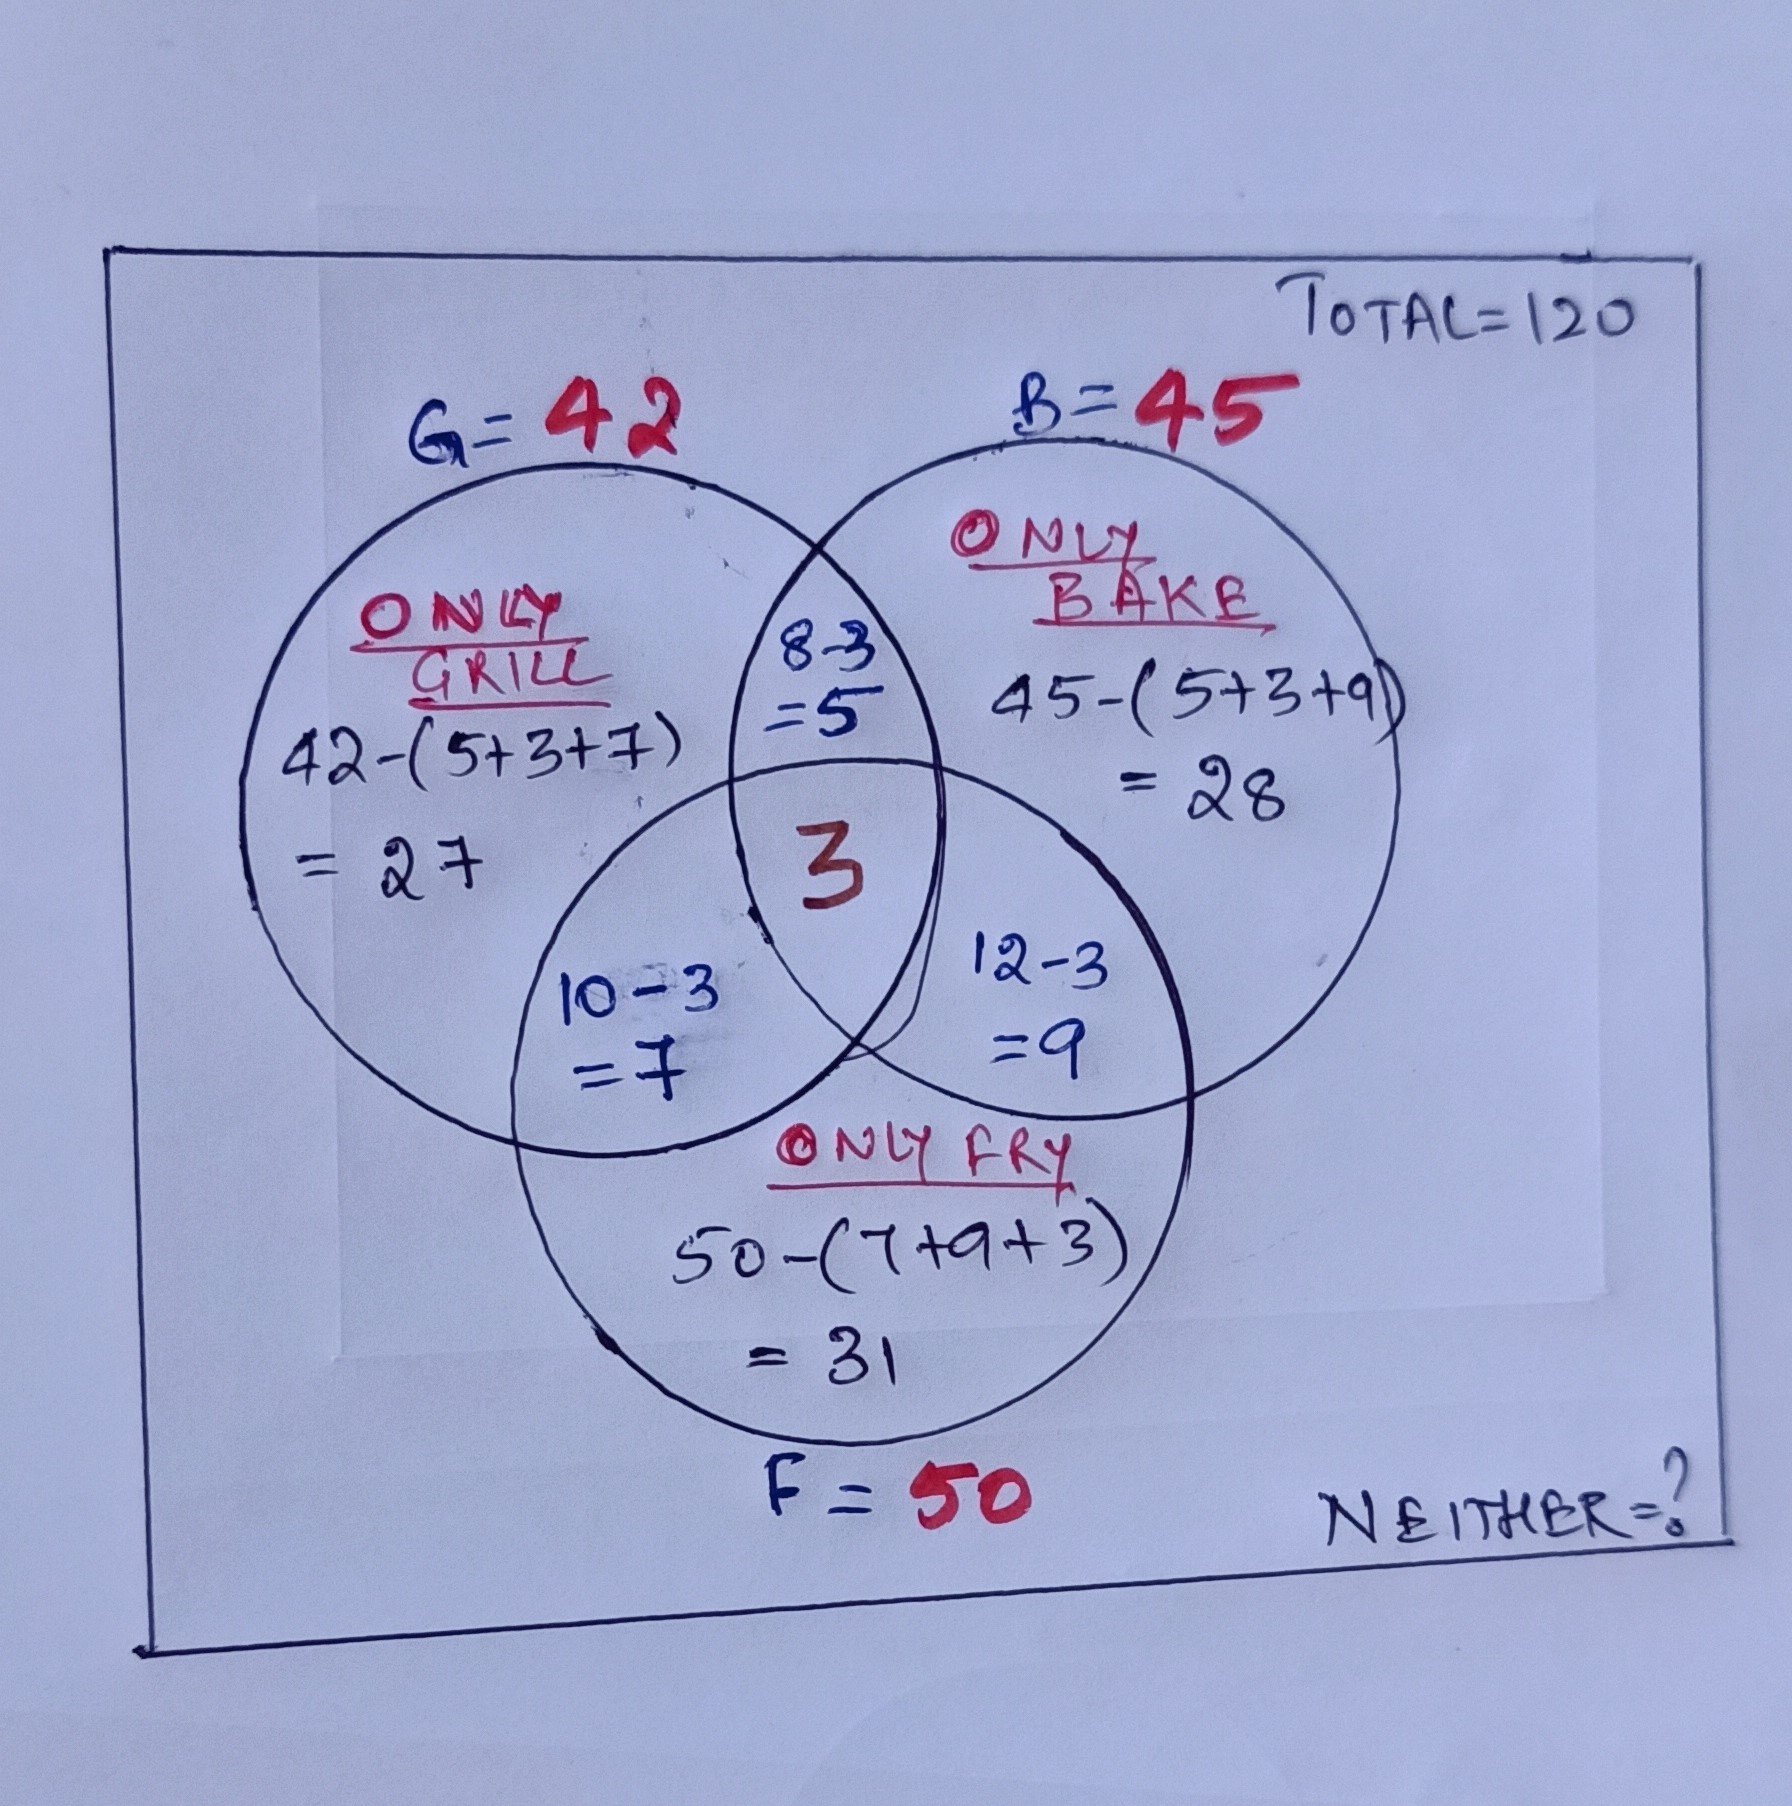 TOTAL=120
G= 42
B= 45
ONLY
GRILL
42-(5+3+7)
= 27
8-3
=5
ONLY
BAKE
45-(5+3+9)
= 28
3
10-3
=7
12-3
=9
ONLY FRY
50-(7+9+3)
= 31
F = 50
NEITHER=?